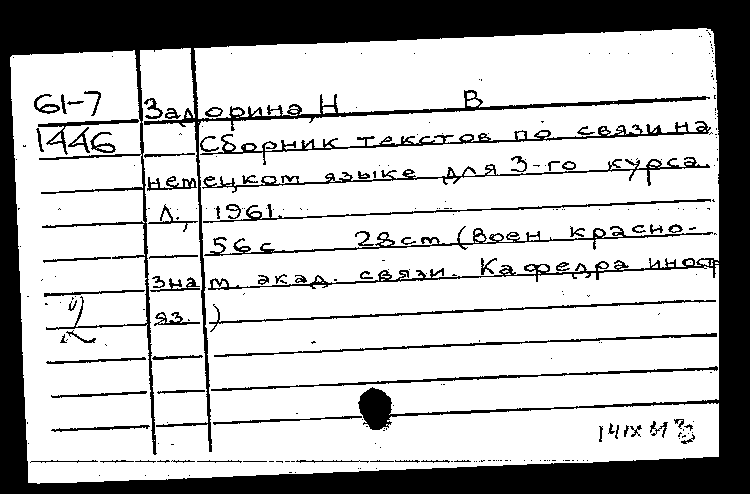 61-7 Задорина, Н В
1446 Сборник текстов по связи на
немецком языке для 3-го курса.
Л., 1961.
56 с 28 см (Воен. красно-
знам. акад. связи. Кафедра иностр
яз.)
2